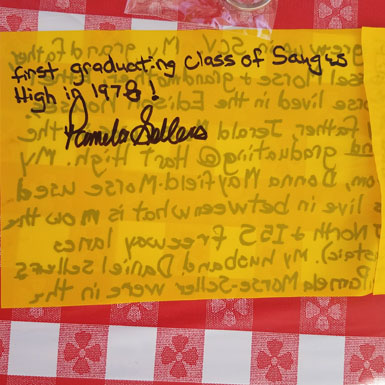 first graduating class of Saugus
High in 1978!
Pamela Sellers
grew up in SCV. My grandfather
Morse + grandmother
lived in the Edison Houses
father, Jerald the
graduating @ Hart High. My
mom, Donna Mayfield-Morse used
to live in between what is now the
North + I55 freeway lanes
(state). My husband Daniel Sellers
Pamela Morse-Seller were in the